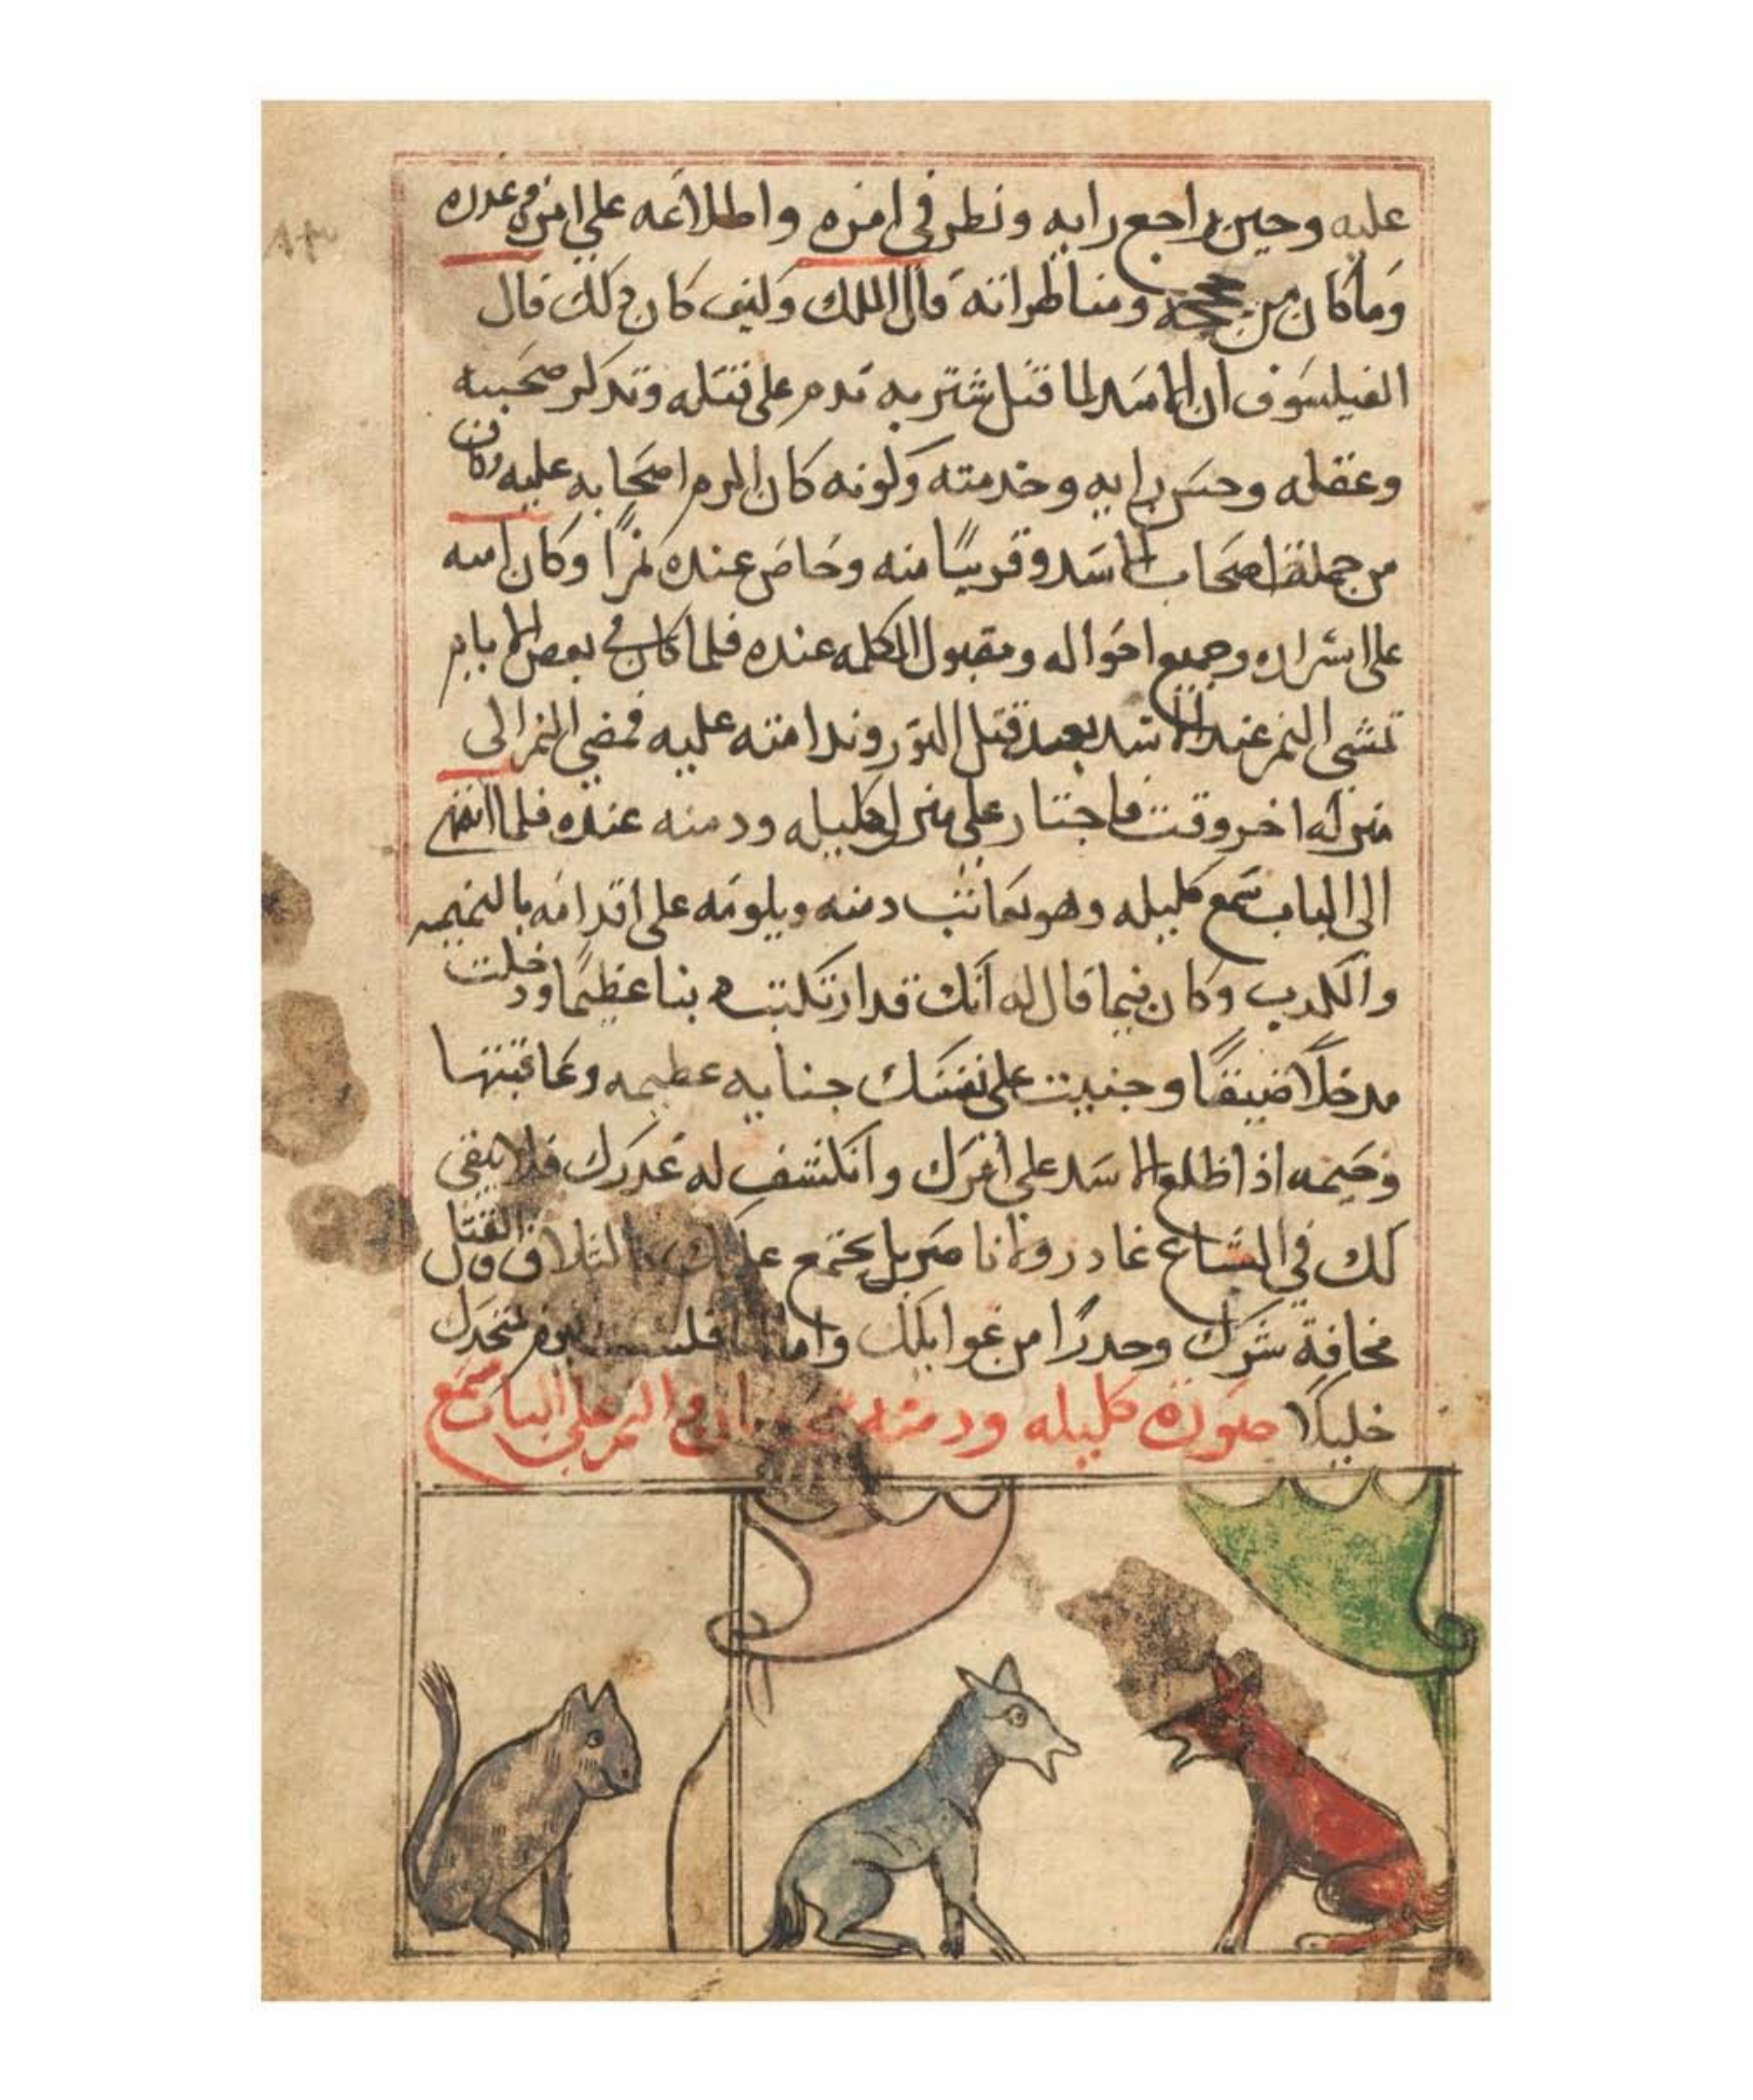 عليه وحين راجع رايه ونظر في امره واطلاعه علي امره وغدره
وما كان من حججه ومناظراته قال الملك وكيف كان ذلك قال
الفيلسوف ان الاسد لما قتل شتربه ندم على قتله وتدكر صحبته
وعقله وحسن رايه وخدمته وكونه كان اكرم اصحابه عليه وكان
من جملة اصحاب الاسد وقريبًا منه وخاص عنده نمرًا وكان امينه
على اسراره وجميع احواله ومقبول الكلمه عنده فلما كان في بعض الايام
تمشي النمر عند الاسد بعد قتل التور وندامته عليه فمضي النمر الى
منزله اخر وقت فاجتاز علي منزل كليله ودمنه عنده فلما انتهى
الى الباب سمع كليله وهو يعاتب دمنه ويلومه على اقدامه بالنميمه
والكدب وكان فيما قال له انك قد ارتكبت دنبا عظيمًا ودخلت
مدخلًا ضيقًا وجنيت على نفسك جنايه عظيمه وعاقبتها
وخيمه اذا اطلع الاسد على امرك وانكشف له غدرك فلا يبقى
لك في السباع غادر ولا ناصر بل يجتمع عليك التلاف والقتل
مخافة شرك وحدرًا من غوايلك واما انا فلست اليوم متخدك
خليلًا صورة كليله ودمنه والنمر على الباب يسمع